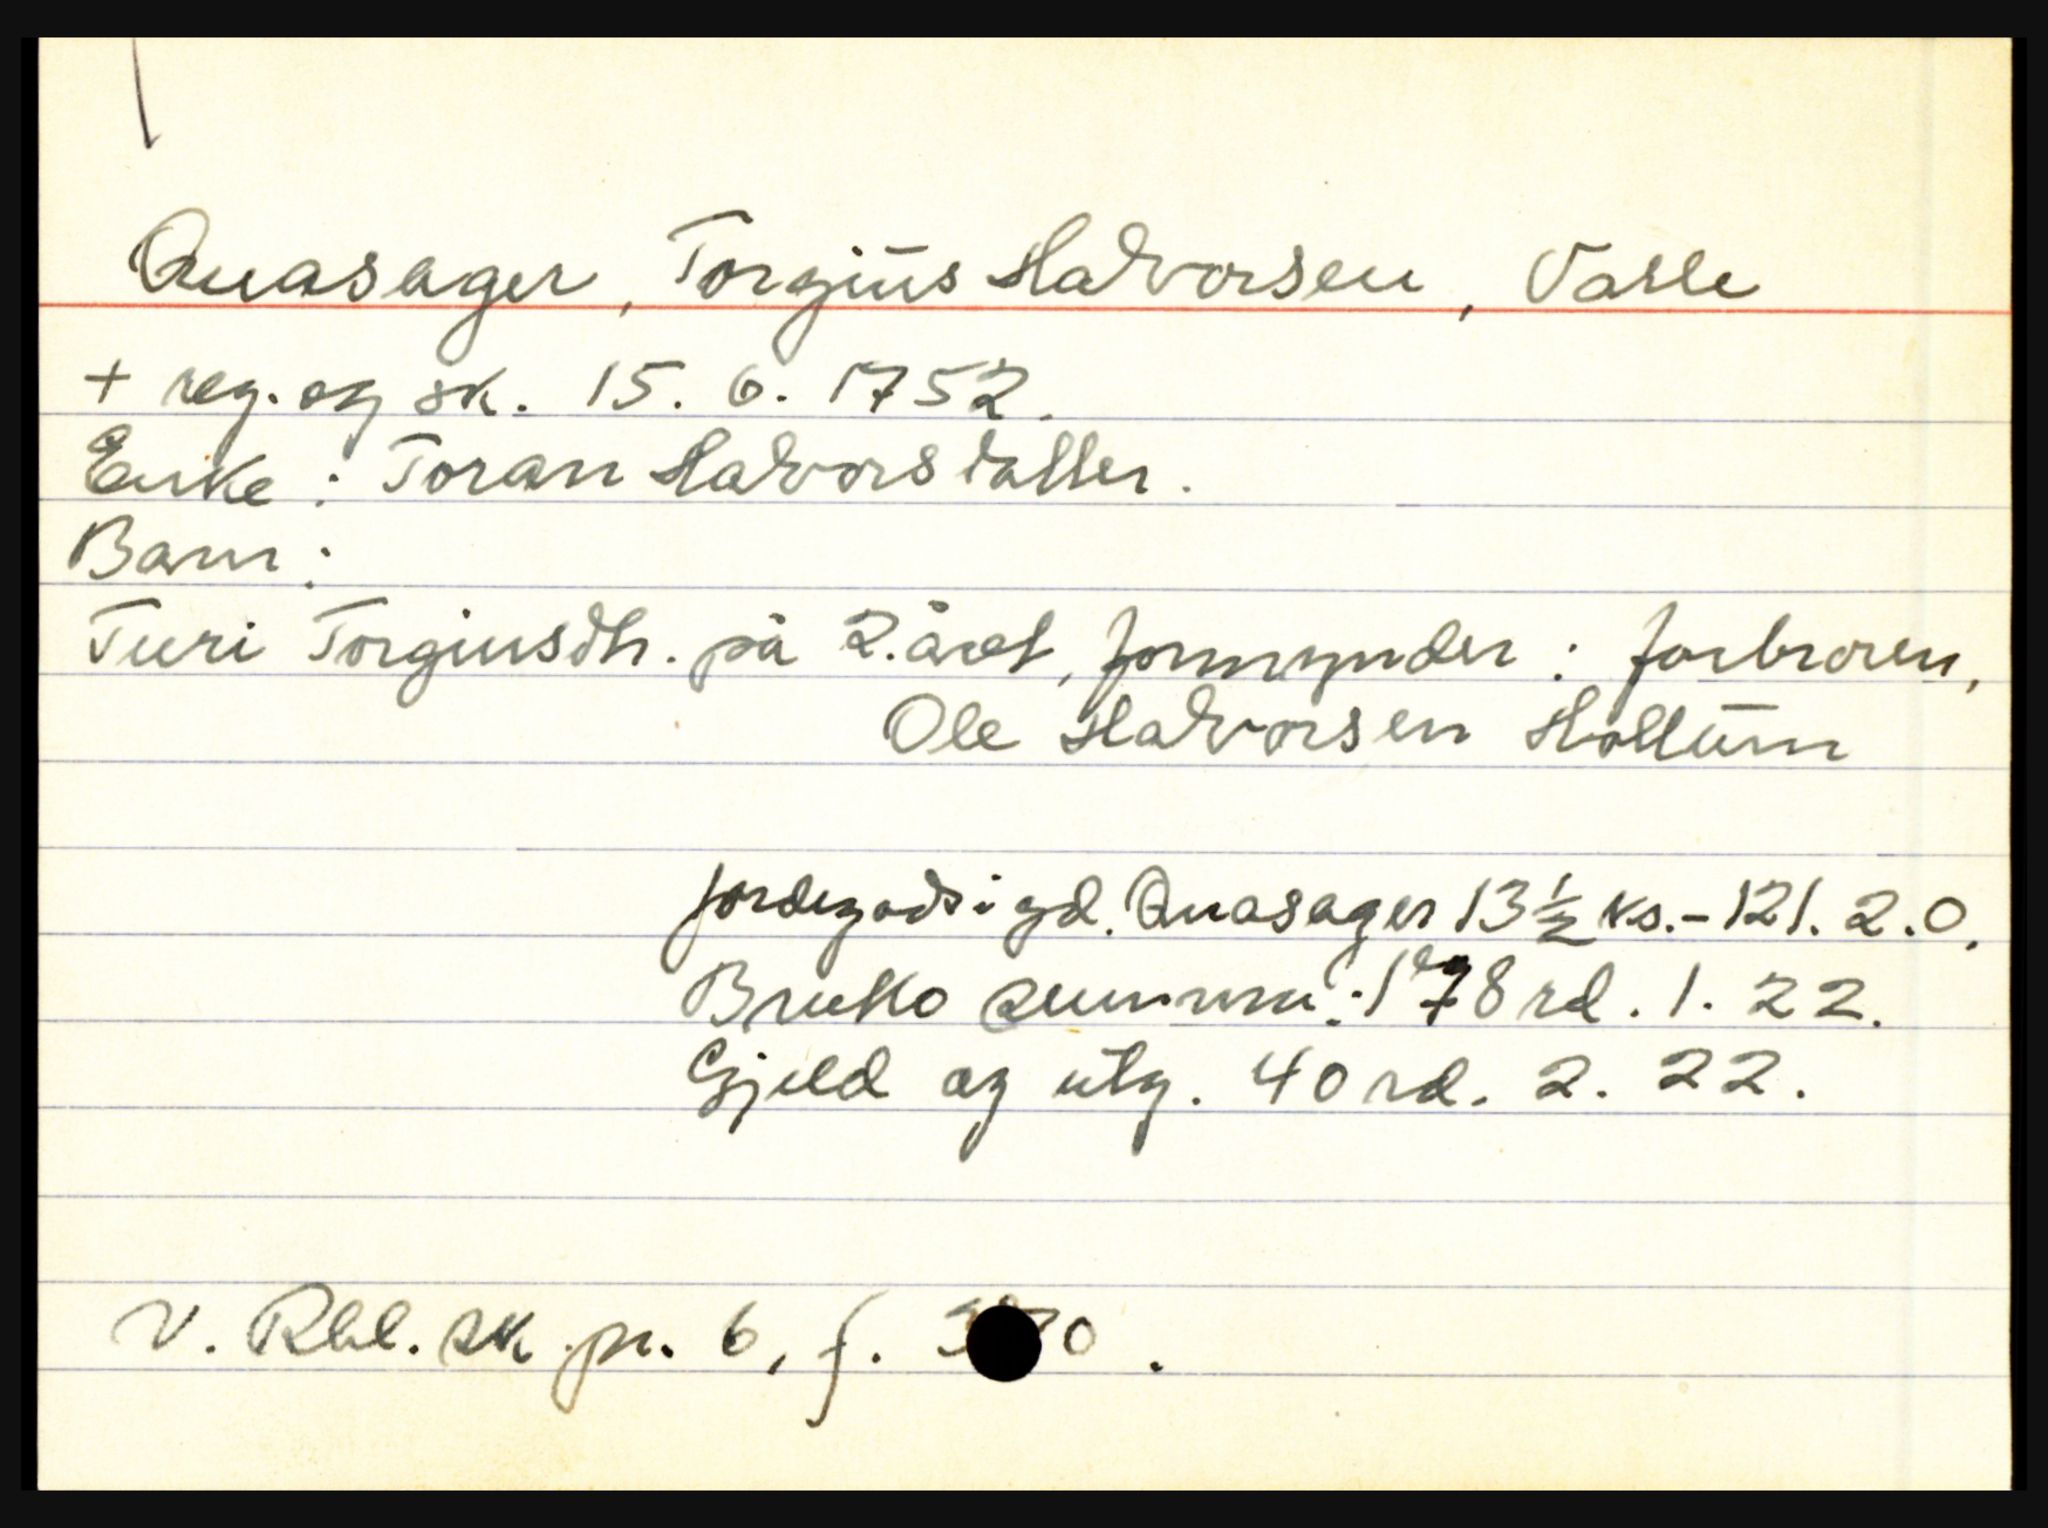 Quasager, Torgius Halvorsen, Valle
+ reg. og sk. 15. 6. 1752.
Enke: Toran Halvorsdatter.
Barn:
Turi Torgiusdtr. på 2. året, formynder: farbroren,
Ole Halvorsen Holtum
Jordegods i gd. Quasager 13 1/2 ks. - 121. 2. 0.
Brutto summa: 178 rd. 1. 22.
Gjeld og utg. 40 rd. 2. 22.
V. Rbl. sk. pr. 6, f.